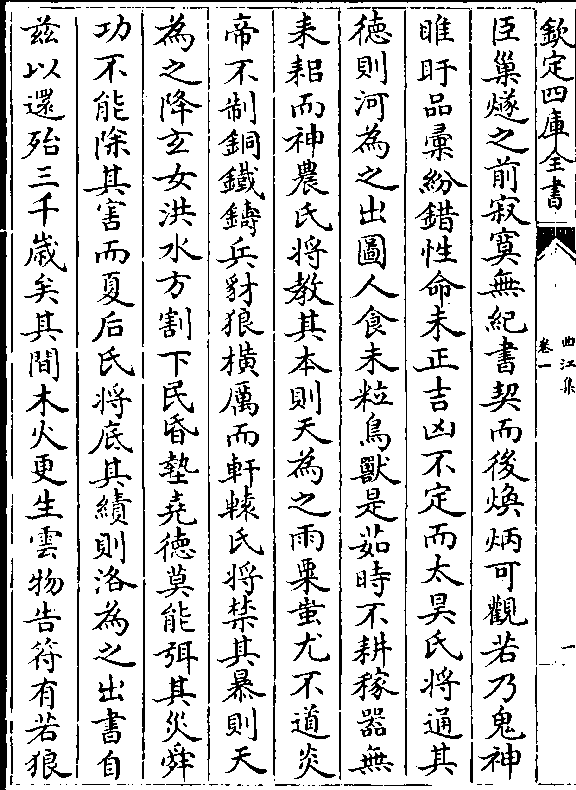 欽定四庫全書
曲江集
卷一
一
臣巢燧之前寂寞無紀書契而後煥炳可觀若乃鬼神
睢盱品彚紛錯性命未正吉凶不定而太昊氏將通其
德則河為之出圖人食未粒鳥獸是茹時不耕稼器無
耒耜而神農氏將教其本則天為之雨粟蚩尤不道炎
帝不制銅鐵鑄兵豺狼橫厲而軒轅氏將禁其暴則天
為之降玄女洪水方割下民昏墊堯德莫能弭其災舜
功不能除其害而夏后氏將底其績則洛為之出書自
兹以還殆三千嵗矣其間木火更生雲物告符有若狼